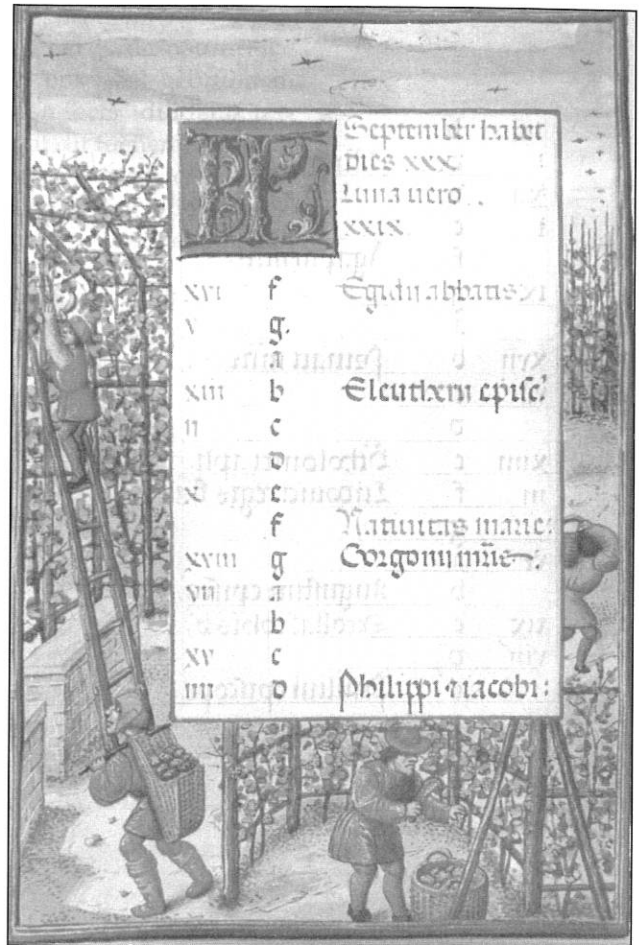 KL September habet
dies xxx
Luna vero
xxix
xvi f Egidii abbatis
v g.
a
xiii b Eleutherii episc'
ii c
d
x e
f Nativitas marie:
xviii g Gorgonii mr̃is
vii a
b
xv c
iiii d Philippi · iacobi: